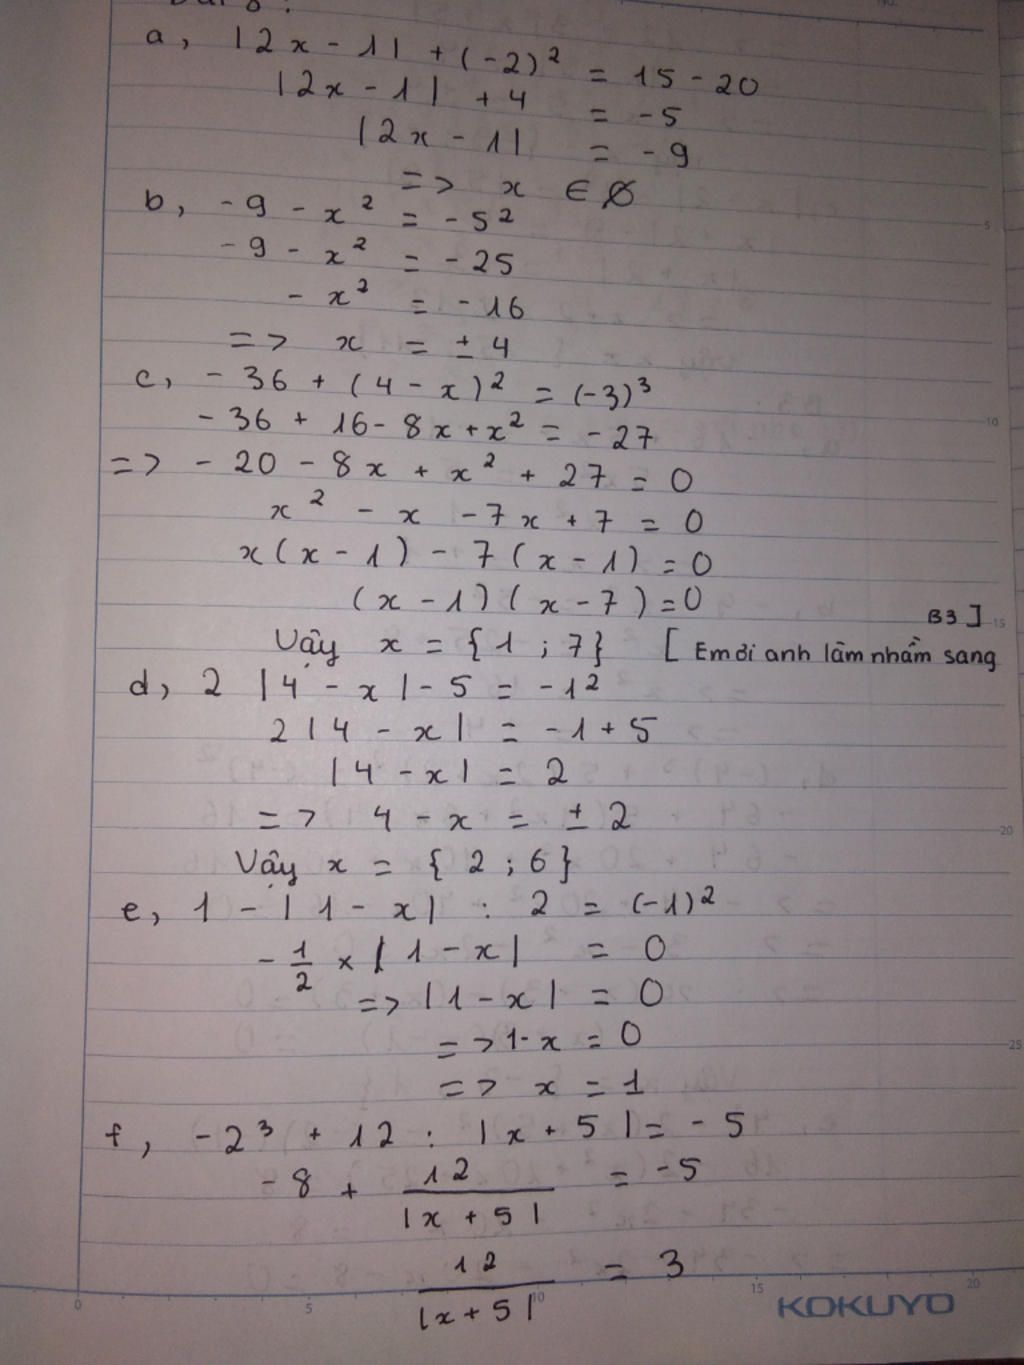 a, |2x - 11| + (-2)² = 15 - 20
|2x - 11| + 4 = -5
|2x - 11| = -9
=> x ∈ ∅
b, -9 - x² = -5²
-9 - x² = -25
- x² = -16
=> x = ± 4
c, -36 + (4 - x)² = (-3)³
-36 + 16 - 8x + x² = -27
=> -20 - 8x + x² + 27 = 0
x² - x - 7x + 7 = 0
x(x - 1) - 7(x - 1) = 0
(x - 1)(x - 7) = 0
Vậy x = {1 ; 7} [Em ơi anh làm nhầm sang B3]
d, 2 |4 - x| - 5 = -1²
2|4 - x| = -1 + 5
|4 - x| = 2
=> 4 - x = ± 2
Vậy x = {2 ; 6}
e, 1 - |1 - x| : 2 = (-1)²
-1/2 × |1 - x| = 0
=> |1 - x| = 0
=> 1 - x = 0
=> x = 1
f, -2³ + 12 : |x + 5| = -5
-8 + 12/|x + 5| = -5
12/|x + 5| = 3
KOKUYO